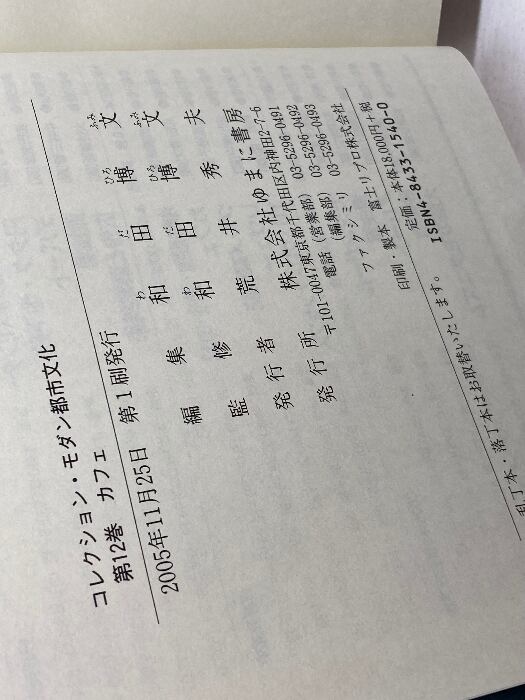 コレクション・モダン都市文化
第12巻 カフェ
2005年11月25日 第1刷発行
編集 和田博文
わだひろふみ
監修 和田博文
わだひろふみ
発行者 荒井秀夫
発行所 株式会社ゆまに書房
〒101-0047東京都千代田区内神田2-7-6
電話(営業部) 03-5296-0491
(編集部) 03-5296-0492
ファクシミリ 03-5296-0493
印刷・製本 富士リプロ株式会社
定価:本体18,000円+税
ISBN4-8433-1540-0
乱丁本・落丁本はお取替いたします。